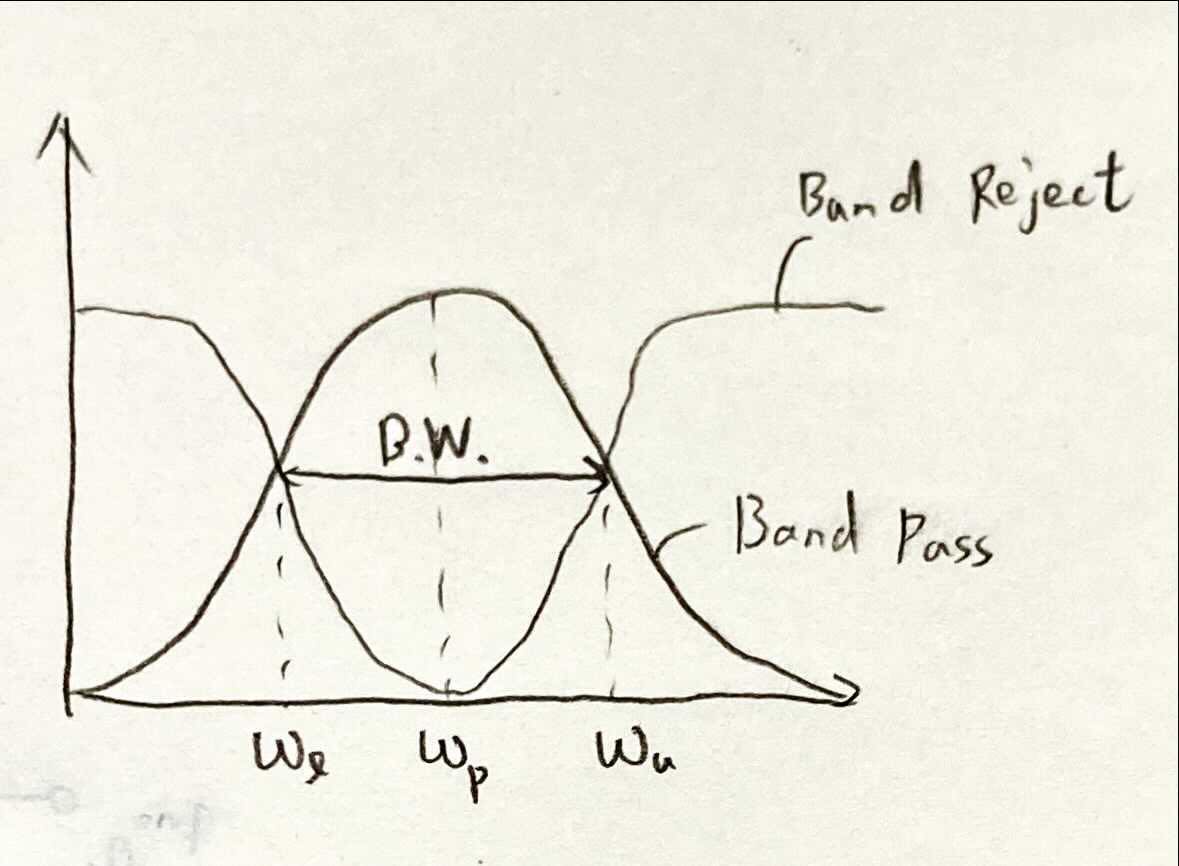 Band Reject
B.W.
Band Pass
ωℓ
ωp
ωu